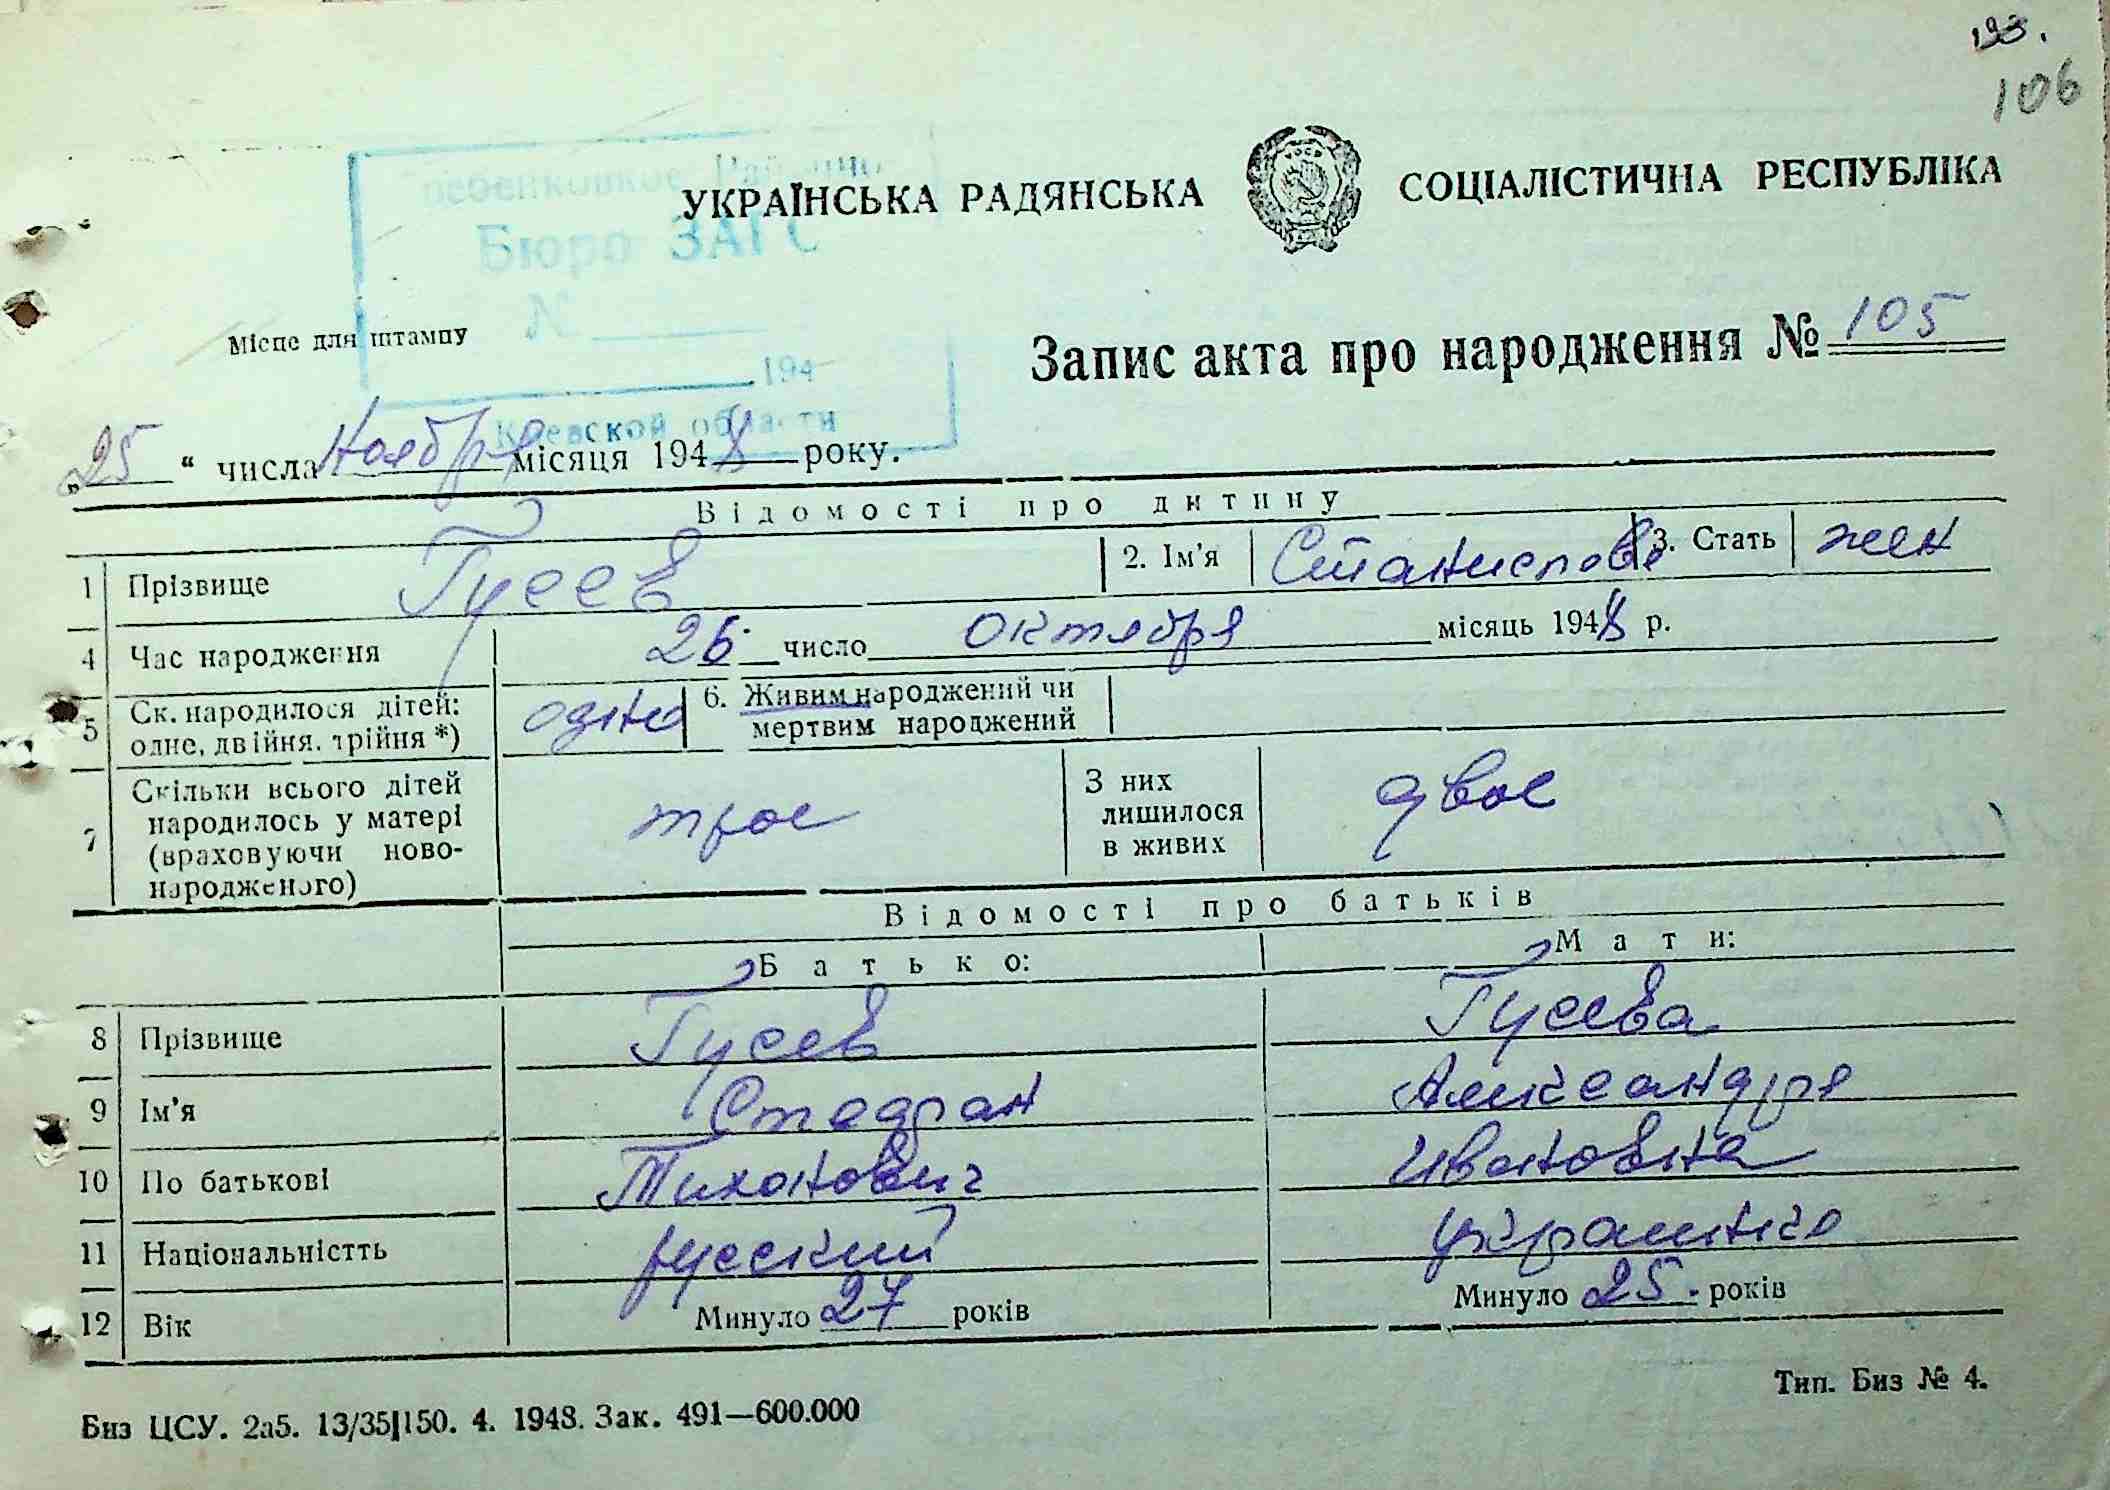 193.
106
Бюро ЗАГС
N
194
Киевской области
УКРАЇНСЬКА РАДЯНСЬКА СОЦІАЛІСТИЧНА РЕСПУБЛІКА
Місце для штампу
Запис акта про народження № 105
„25“ числа Ноября місяця 1948 року.
Відомості про дитину
1 Прізвище Гусев 2. Ім'я Станислава 3. Стать жен
4 Час народження 26 число октября місяць 1948 р.
5 Ск. народилося дітей: одне, двійня, трійня *) одно 6. Живим народжений чи мертвим народжений
7 Скільки всього дітей народилось у матері (враховуючи новонародженого) трое З них лишилося в живих двое
Відомості про батьків
Батько: Мати:
8 Прізвище Гусев Гусева
9 Ім'я Стефан Александра
10 По батькові Тихонович Ивановна
11 Національністть русский украинка
12 Вік Минуло 27 років Минуло 25 років
Биз ЦСУ. 2а5. 13/35|150. 4. 1948. Зак. 491—600.000
Тип. Биз № 4.